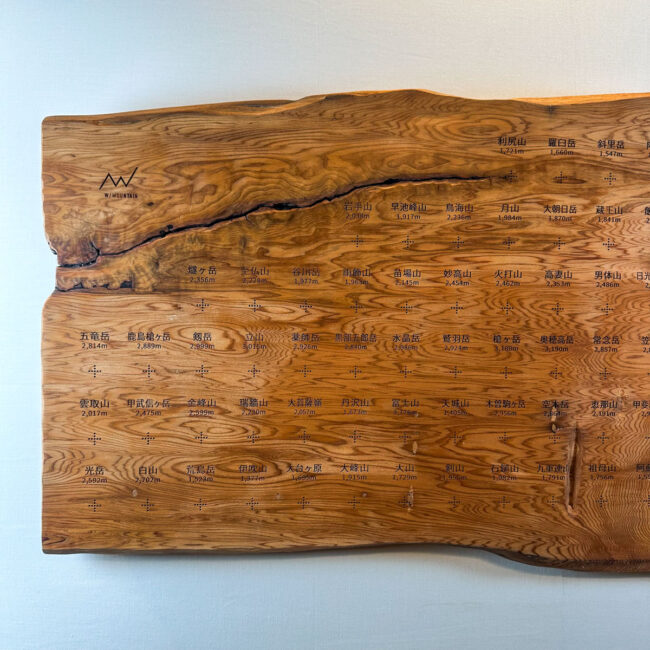 利尻山 羅臼岳 斜里岳
1,721m 1,660m 1,547m
W/MOUNTAIN
岩手山 早池峰山 鳥海山 月山 大朝日岳 蔵王山
2,038m 1,917m 2,236m 1,984m 1,870m 1,841m
燧ヶ岳 至仏山 谷川岳 苗場山 妙高山 火打山 高妻山 男体山
2,356m 2,228m 1,977m 2,145m 2,454m 2,462m 2,353m 2,486m
五竜岳 鹿島槍ヶ岳 剱岳 立山 薬師岳 黒部五郎岳 水晶岳 鷲羽岳 槍ヶ岳 奥穂高岳 常念岳
2,814m 2,889m 2,999m 3,015m 2,926m 2,840m 2,986m 2,924m 3,180m 3,190m 2,857m
雲取山 甲武信ヶ岳 金峰山 瑞牆山 大菩薩嶺 丹沢山 富士山 天城山 木曽駒ヶ岳 空木岳 恵那山
2,017m 2,475m 2,599m 2,230m 2,057m 3,776m 2,956m 2,191m
光岳 白山 荒島岳 伊吹山 大台ヶ原 大峰山 大山 剣山 石鎚山 九重連山 祖母山
2,592m 2,702m 1,523m 1,377m 1,695m 1,915m 1,729m 1,982m 1,791m 1,756m